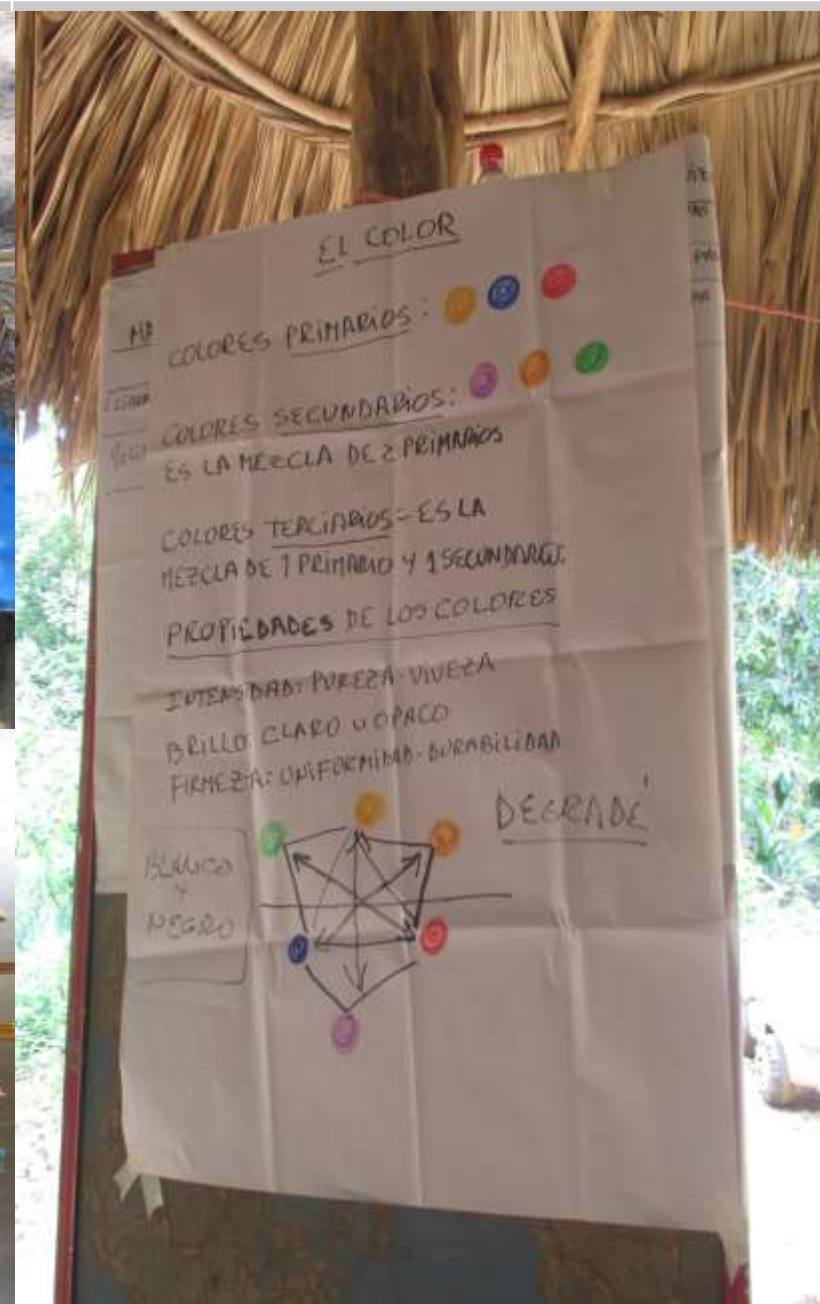 EL COLOR
COLORES PRIMARIOS:
COLORES SECUNDARIOS:
ES LA MEZCLA DE 2 PRIMARIOS
COLORES TERCIARIOS - ES LA
MEZCLA DE 1 PRIMARIO Y 1 SECUNDARIO.
PROPIEDADES DE LOS COLORES
INTENSIDAD: PUREZA - VIVEZA
BRILLO: CLARO U OPACO
FIRMEZA: UNIFORMIDAD - DURABILIDAD
DEGRADÉ
BLANCO
Y
NEGRO